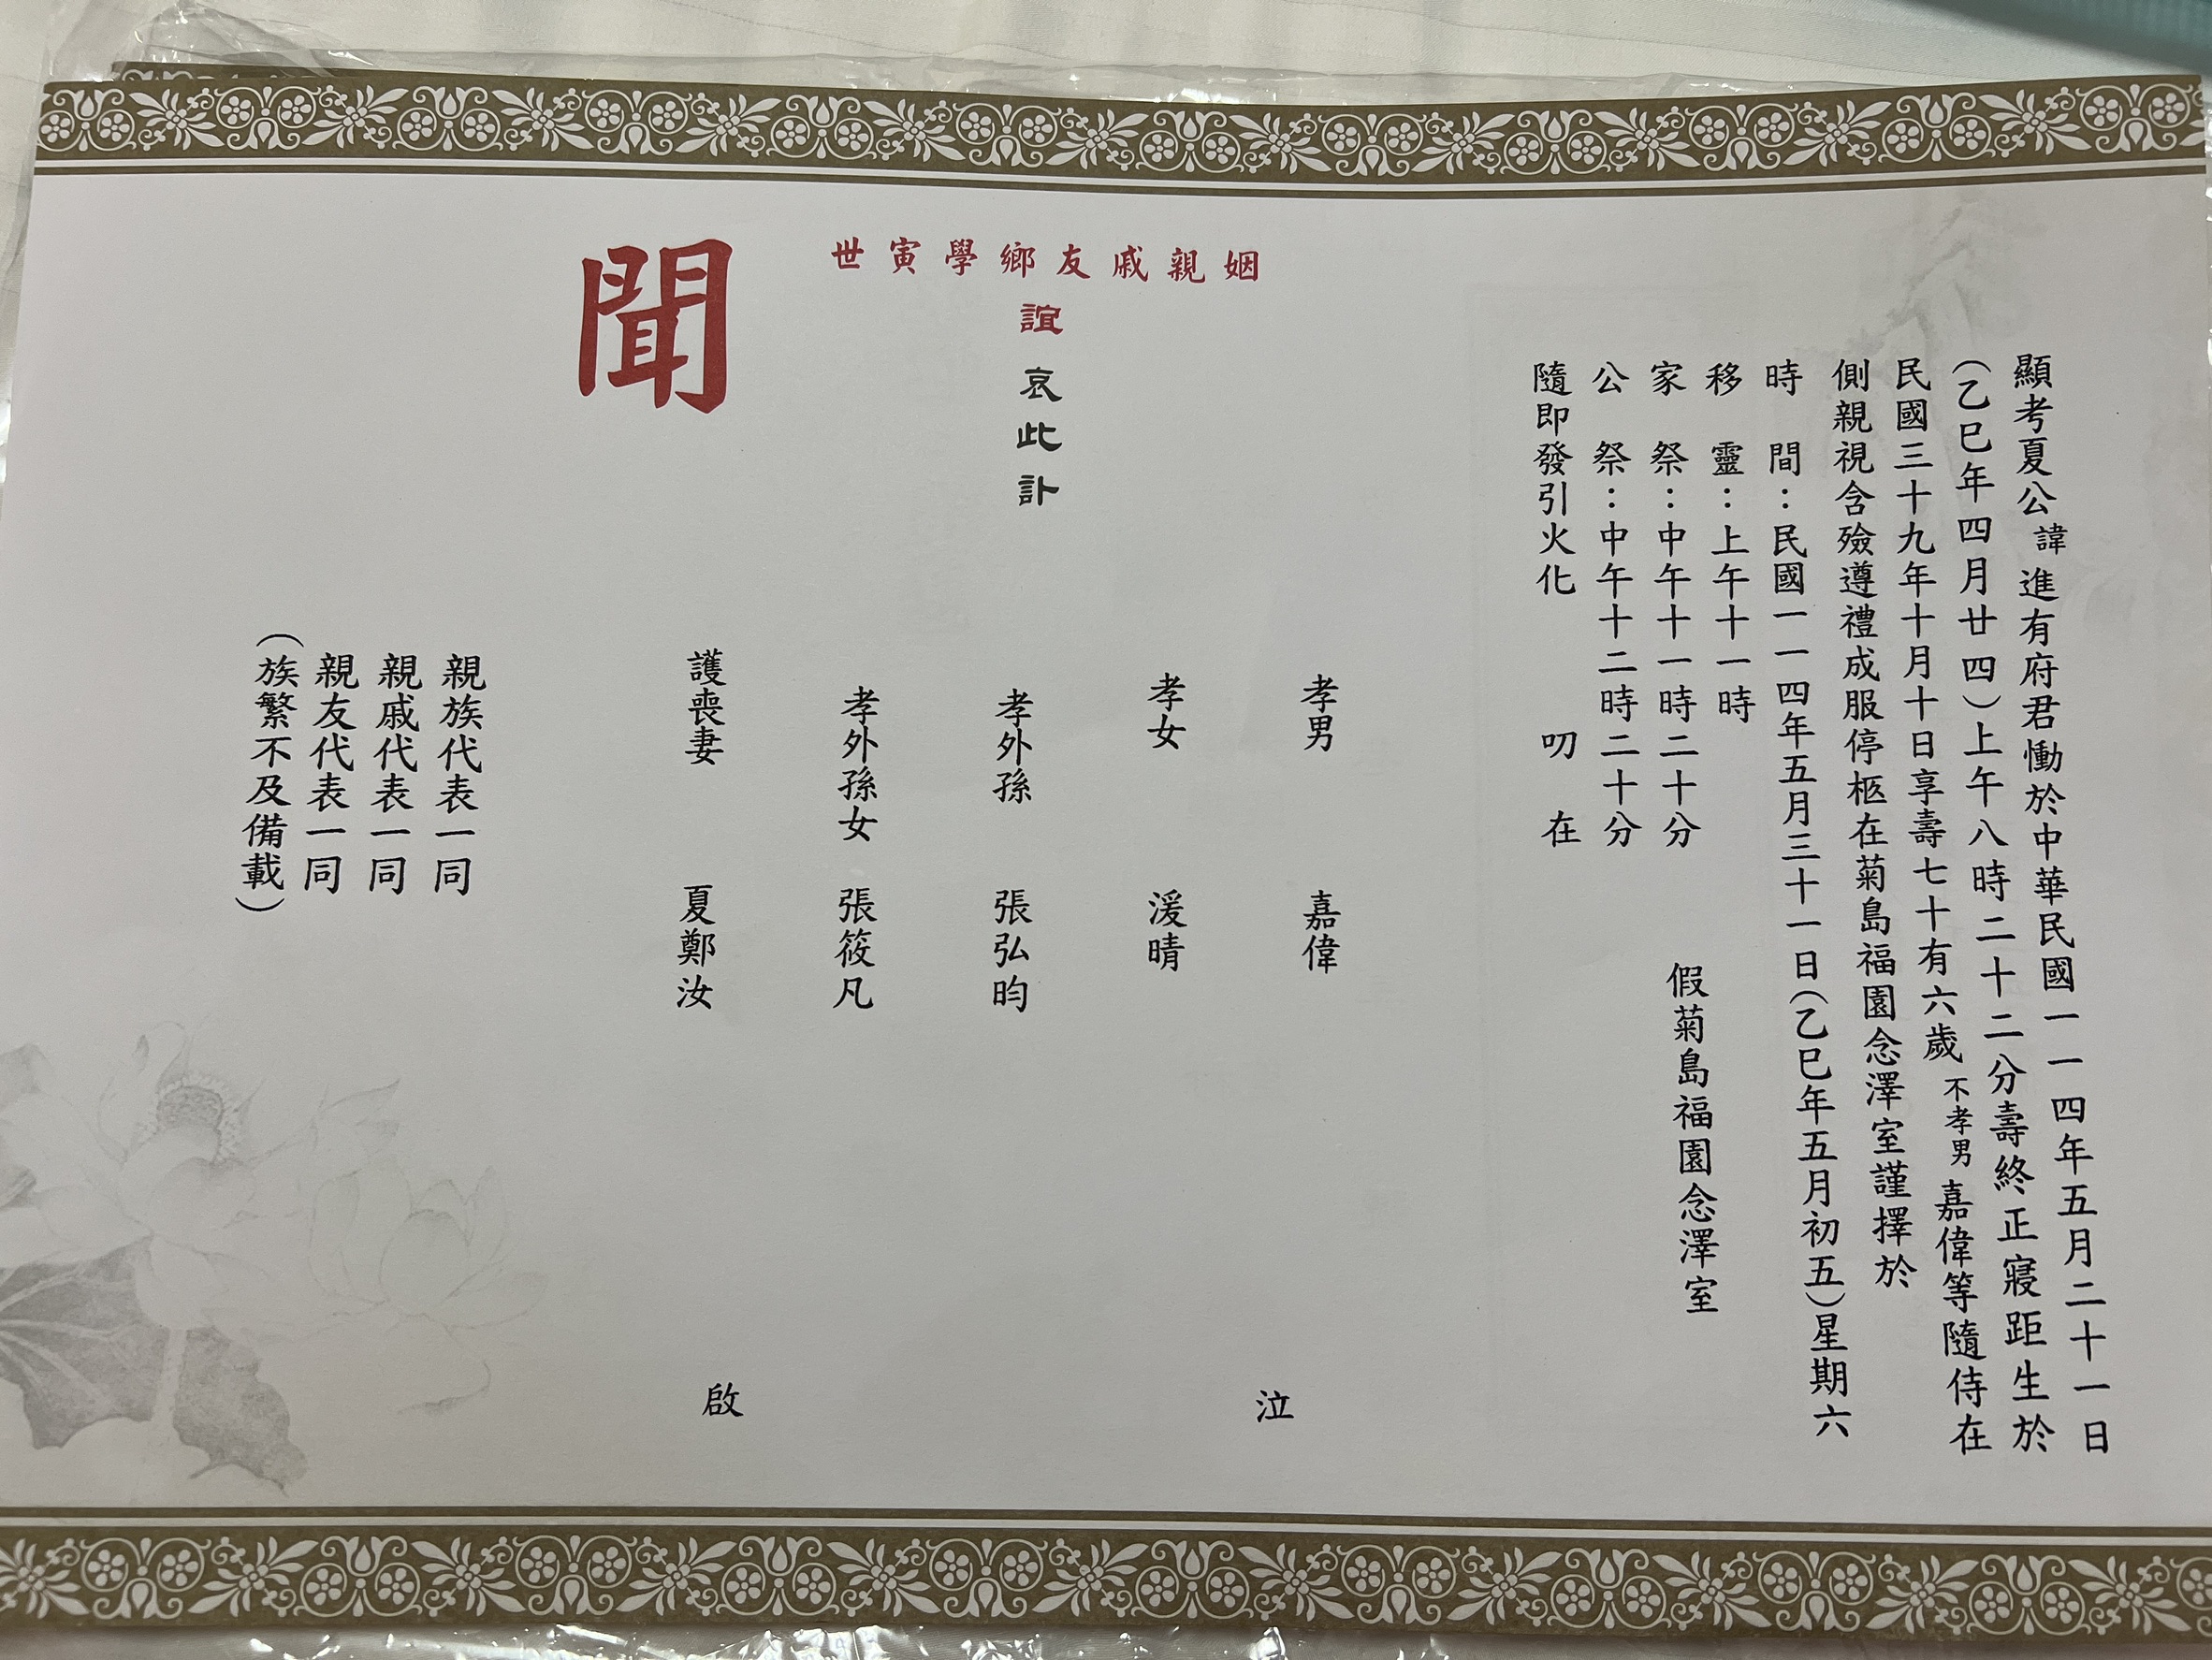 顯考夏公諱進有府君慟於中華民國一一四年五月二十一日
(乙巳年四月廿四)上午八時二十二分壽終正寢距生於
民國三十九年十月十日享壽七十有六歲不孝男嘉偉等隨侍在
側親視含殮遵禮成服停柩在菊島福園念澤室謹擇於
時間：民國一一四年五月三十一日(乙巳年五月初五)星期六
移靈：上午十一時
家祭：中午十一時二十分
假菊島福園念澤室
公祭：中午十二時二十分
隨即發引火化 叨在
姻親戚友鄉學寅世
誼哀此訃
聞
孝男 嘉偉
孝女 湲晴
泣
孝外孫 張弘昀
孝外孫女 張筱凡
護喪妻 夏鄭汝
啟
親族代表一同
親戚代表一同
親友代表一同
(族繁不及備載)